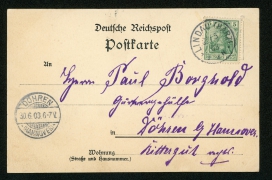 Deutsche Reichspost
Postkarte
An
Herrn Paul Borgwold
Gärtnergehülfe
in Döhren b/ Hannover.
Rittergut
Wohnung
(Straße und Hausnummer.)
DÖHREN
30.6.03. 6-7V.
(HANNOVER)
LINDAU